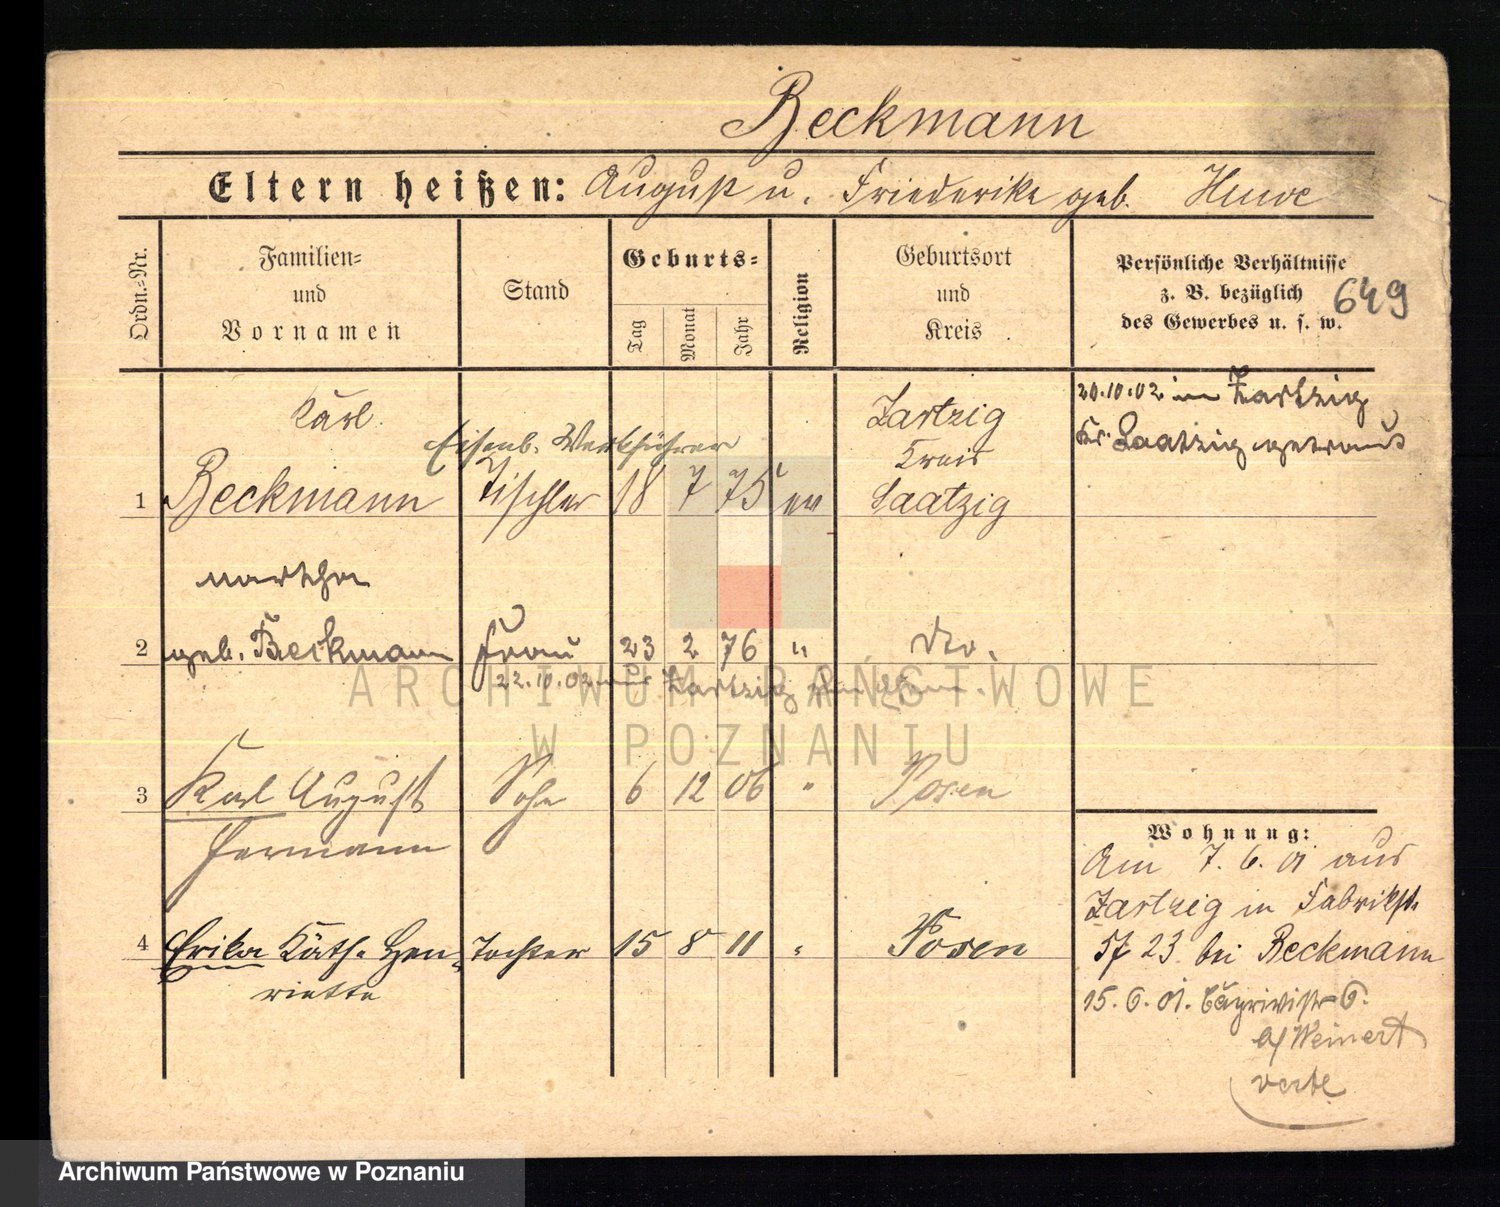 Beckmann
Eltern heißen: August u. Friederike geb. Huwe
Ordn.=Nr.
Familien=
und
Vornamen
Stand
Geburts=
Tag
Monat
Jahr
Religion
Geburtsort
und
Kreis
Persönliche Verhältnisse
z. B. bezüglich
des Gewerbes u. s. w.
649
Karl
Eisenb. Werkführer
1 Beckmann Tischler 18 7 75 ev
Zartzig
Kreis
Saatzig
20.10.02 in Zartzig
Kr. Saatzig getraut
Martha
2 geb. Beckmann Frau 23 2 76 " dto.
22.10.02 aus Zartzig
3 Karl August Sohn 6 12 06 " Posen
Hermann
4 Erika Käth. Hen= Tochter 15 8 11 " Posen
riette
Wohnung:
Am 7. 6. 01 aus
Zartzig in Fabrikstr.
23 bei Beckmann
15. 6. 01. 6.
b/ Weinert
verte
ARCHIWUM PAŃSTWOWE
W POZNANIU
Archiwum Państwowe w Poznaniu